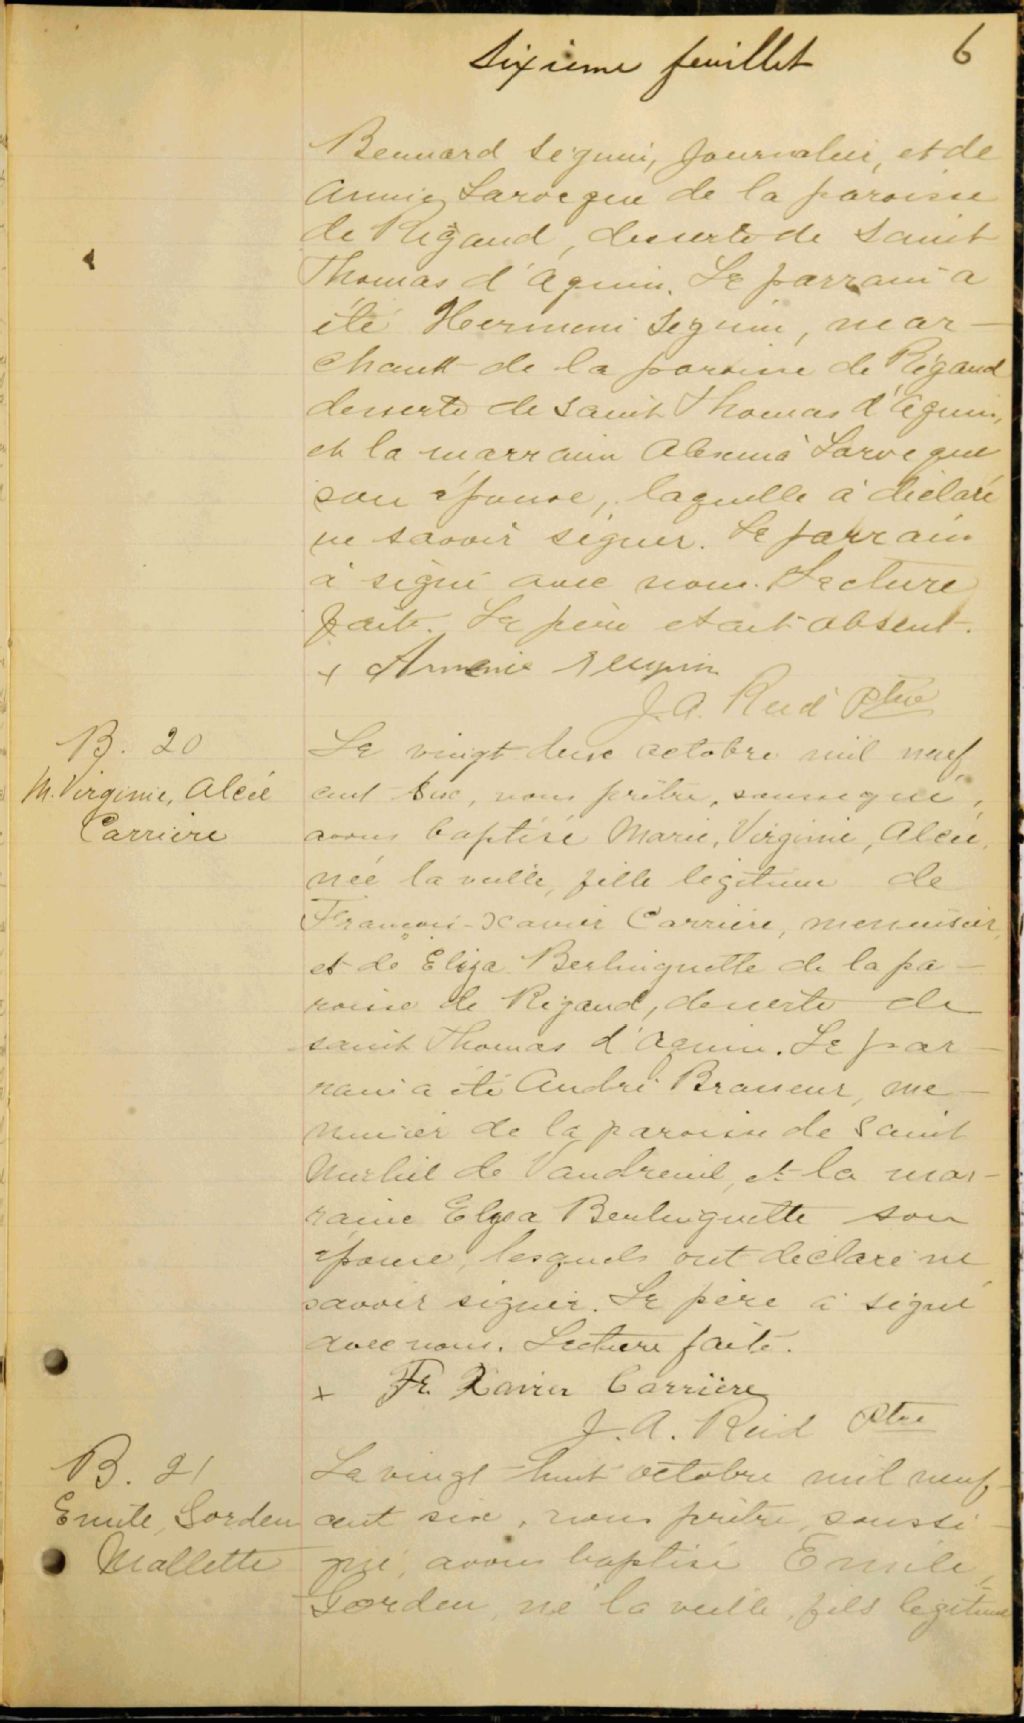 Sixieme feuillet 6
Bernard Seguin, journalier, et de
Annie Larocque de la paroisse
de Rigaud, desserte de Saint
Thomas d'Aquin. Le parrain a
été Seguin, mar-
chand de la paroisse de Rigaud
desserte de Saint Thomas d'Aquin,
et la marraine Larocque
son épouse, laquelle a déclaré
ne savoir signer. Le parrain
a signé avec nous. Lecture
faite. Le père etait absent.
+ Seguin
J. A. Reid Ptre
B. 20
M. Virginie, Alcée
Carrière
Le vingt deux octobre mil neuf
cent six, nous prêtre, soussigné,
avons baptisé Marie, Virginie, Alcée,
née la veille, fille légitime de
François-Xavier Carrière, menuisier,
et de Eliza Berlinguette de la pa-
roisse de Rigaud, desserte de
saint Thomas d'Aquin. Le par-
rain a été André Brasseur, me-
nuisier de la paroisse de Saint
Michel de Vaudreuil, et la mar-
raine Elgea Berlinguette son
épouse, lesquels ont déclaré ne
savoir signer. Le père a signé
avec nous. Lecture faite.
+ Fr. Xavier Carrière
J. A. Reid Ptre
B. 21
Emile, Gorden
Mallette
Le vingt-huit octobre mil neuf-
cent six, nous prêtre, soussi-
gné, avons baptisé Emile,
Gorden, né la veille, fils légitime